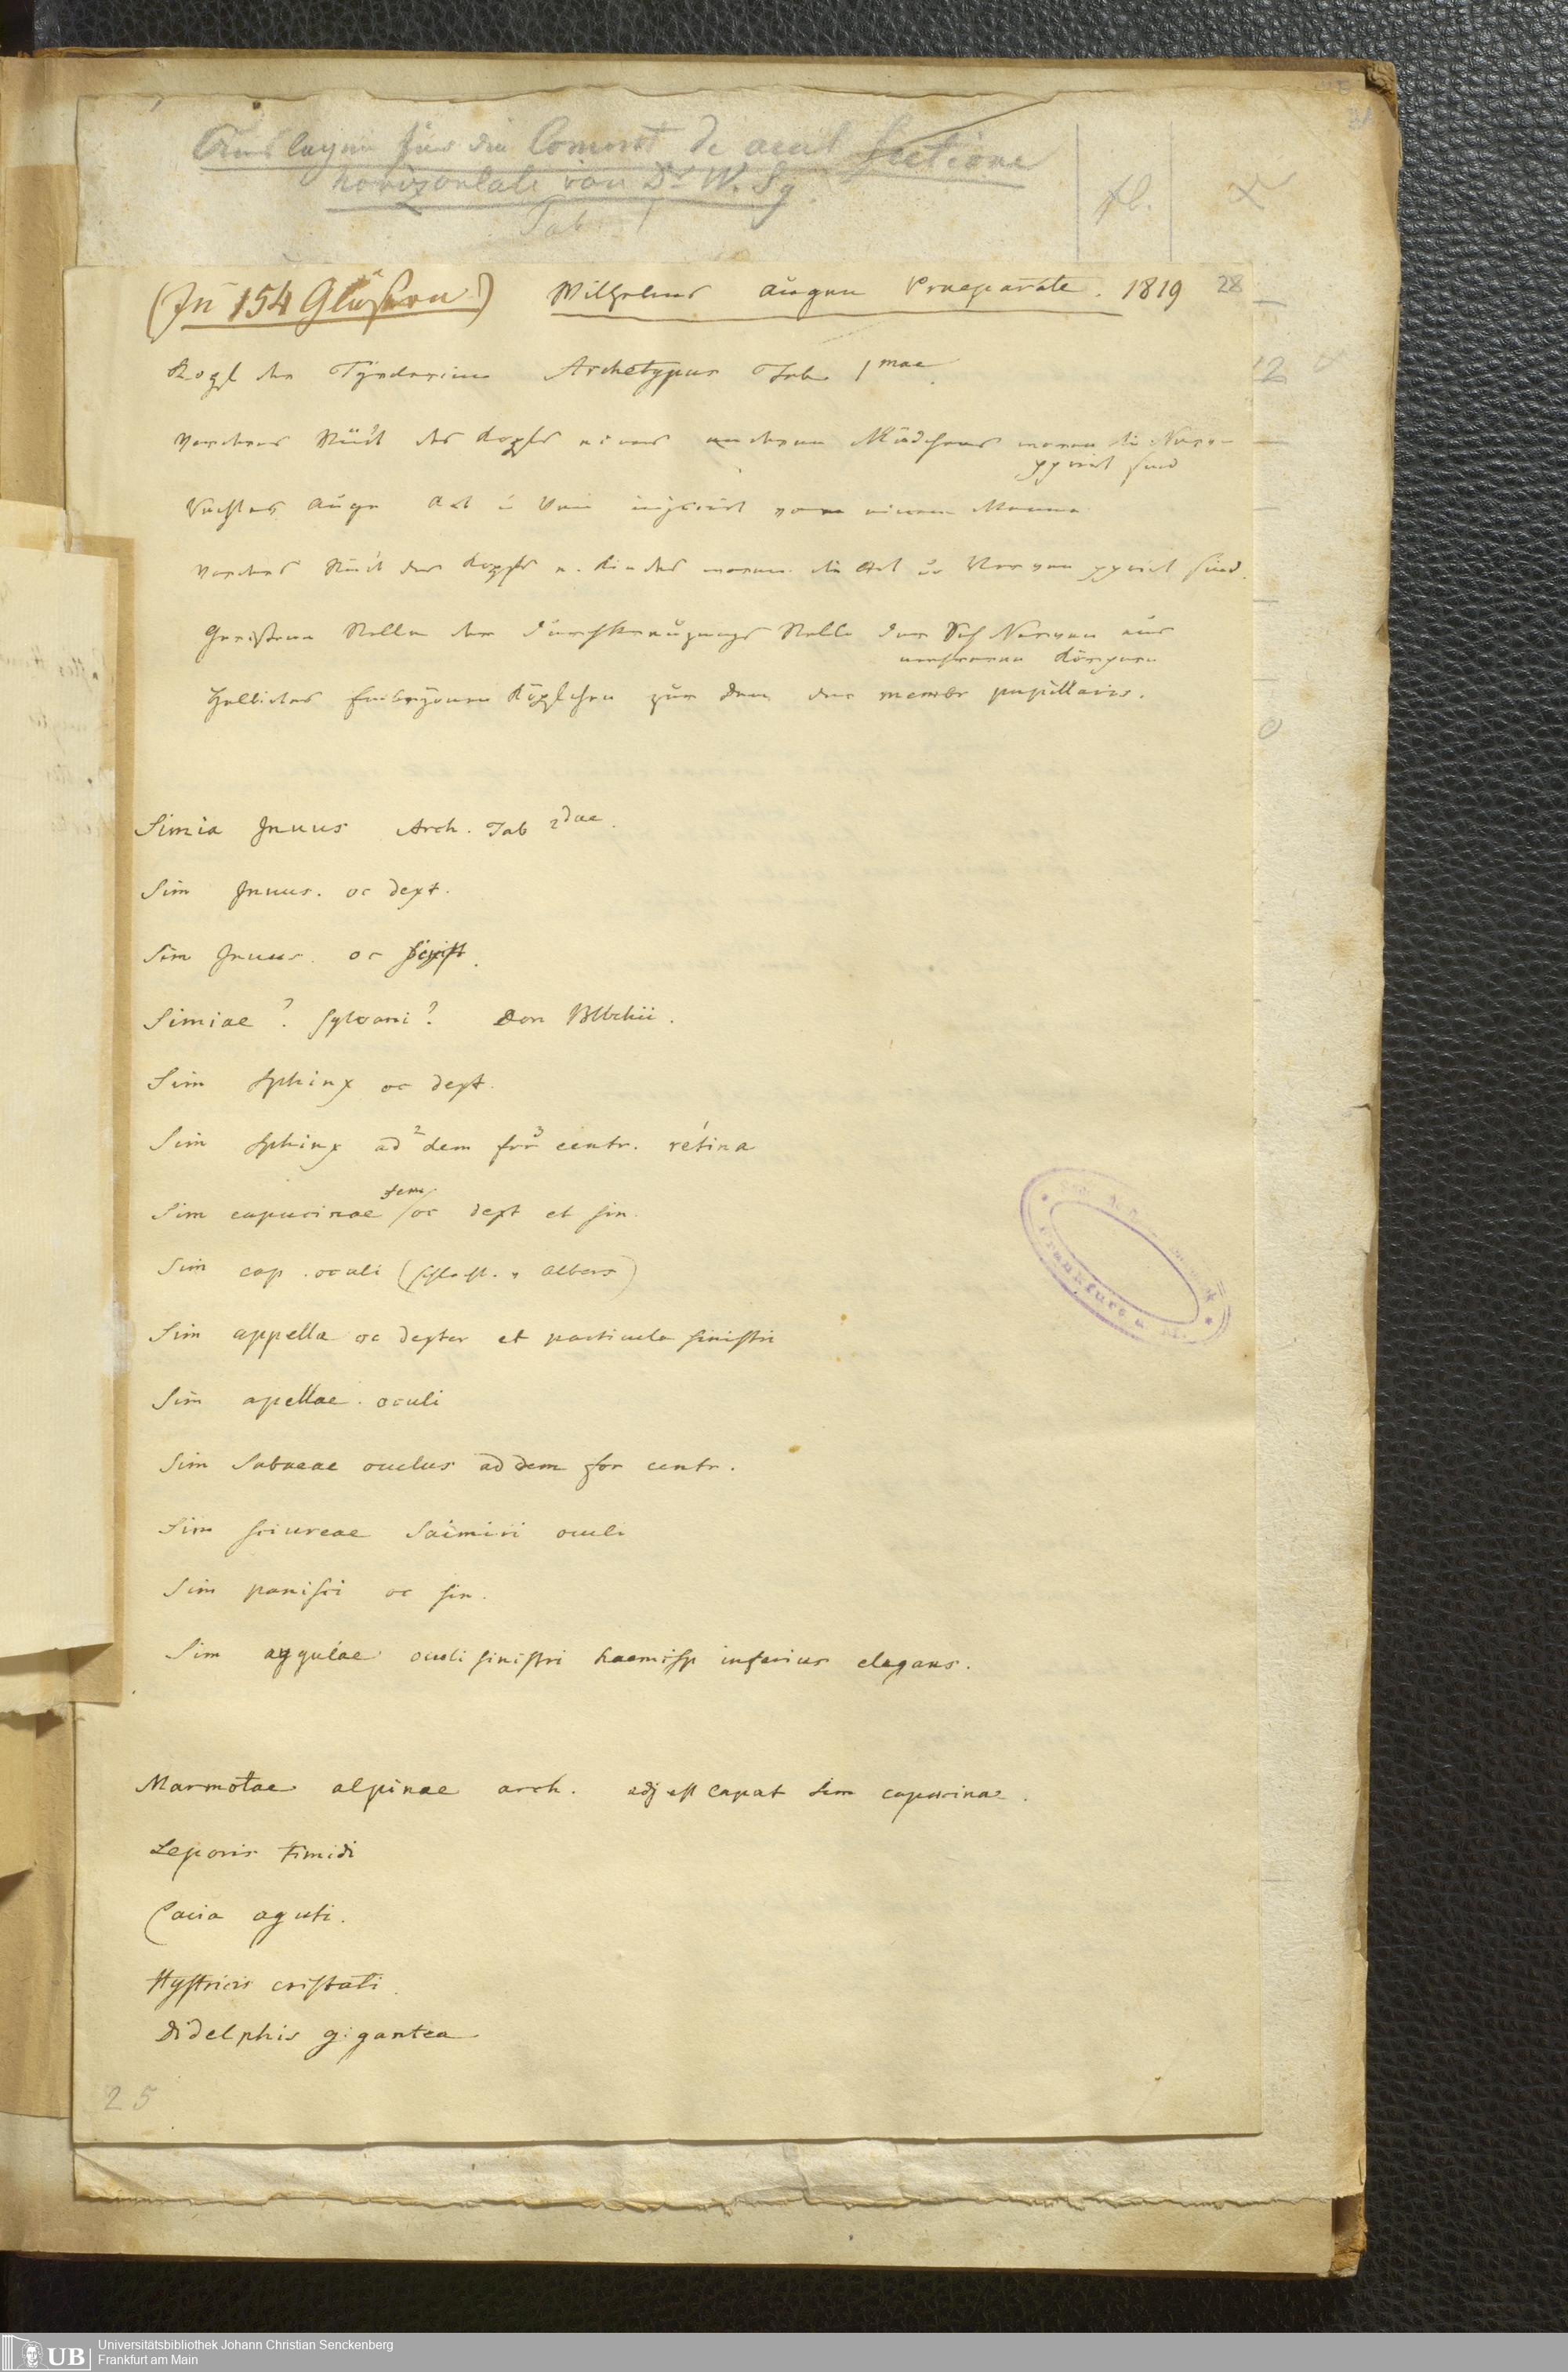 Auslagen für die Coment de ocul Sectione
horizontali von Dr W. Sg
Tab. I
fl. x
(In 154 Gläsern) Wilhelms Augen Praeparate. 1819 28
Kopf der Tÿrolerinn Archetypus Tab 1mae
Vorderes Stück des Kopfes eines anderen Mädchens woran die Nerven
ppirt sind
Rechtes Auge Art u Ven injicirt von einem Manne
Vorderes Stück des Kopfes e. Kindes woran die Art u Nerven ppirt sind.
Stelle der Durchkreuzungs Stelle der Seh Nerven aus
mehreren Körpern
Embrÿonen Köpfchen zur Dem der membr pupillaris.
Simia Jnuus Arch. Tab 2dae.
Sim Jnuus. oc dext.
Sim Jnuus. oc sinist.
Simiae? sylvani? Don Blbchii.
Sim Sphinx oc dext.
Sim Sphinx ad 2 dem for 3 centr. 1 retina
Sim capucinae fem oc dext et sin.
Sim cap. oculi (schlecht. v Albers)
Sim appella oc dexter et particula sinistri
Sim apellae. oculi
Sim Sabaeae oculus ad dem for centr.
Sim sciureae Saimiri oculi
Sim panisci oc sin.
Sim aygulae oculi sinistri haemisp inferius elegans.
Marmotae alpinae arch. adj est Caput Sim capucinae.
Leporis timidi
Cavia aguti.
Hystricis cristati.
Didelphis gigantea
25
Frankfurt a. M.
UB Universitätsbibliothek Johann Christian Senckenberg
Frankfurt am Main